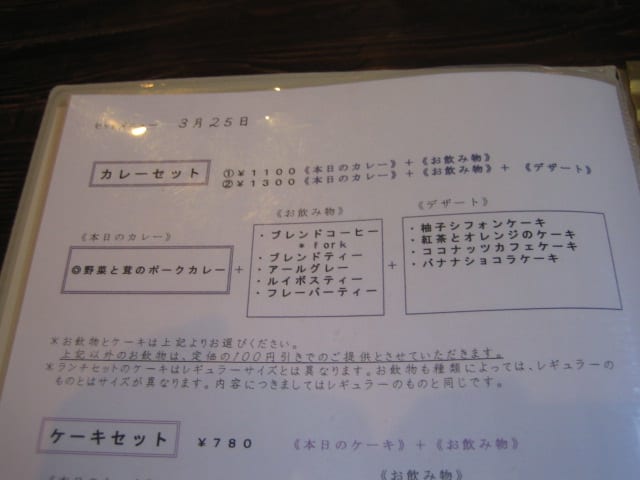 セットメニュー 3月25日
カレーセット ①¥1100《本日のカレー》+《お飲み物》
②¥1300《本日のカレー》+《お飲み物》+《デザート》
《本日のカレー》
◎野菜と茸のポークカレー
+
《お飲み物》
・ブレンドコーヒー
* fork
・ブレンドティー
・アールグレー
・ルイボスティー
・フレーバーティー
+
《デザート》
・柚子シフォンケーキ
・紅茶とオレンジのケーキ
・ココナッツカフェケーキ
・バナナショコラケーキ
*お飲物とケーキは上記よりお選びください。
上記以外のお飲物は、定価の100円引きでのご提供とさせていただきます。
*ランチセットのケーキはレギュラーサイズとは異なります。お飲物も種類によっては、レギュラーの
ものとはサイズが異なります。内容につきましてはレギュラーのものと同じです。
ケーキセット ¥780 《本日のケーキ》+《お飲み物》
《お飲み物》